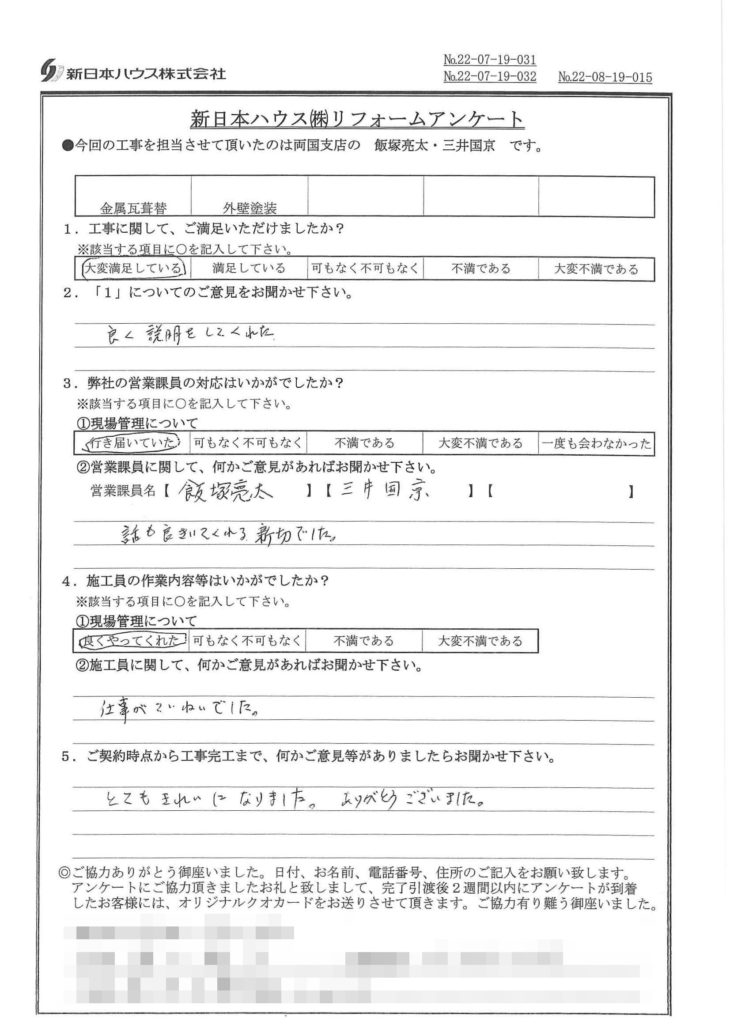 新日本ハウス株式会社
№22-07-19-031
№22-07-19-032 №22-08-19-015
新日本ハウス㈱リフォームアンケート
●今回の工事を担当させて頂いたのは両国支店の 飯塚亮太・三井国京 です。
金属瓦葺替 外壁塗装
1．工事に関して、ご満足いただけましたか？
※該当する項目に○を記入して下さい。
大変満足している 満足している 可もなく不可もなく 不満である 大変不満である
2．「1」についてのご意見をお聞かせ下さい。
良く説明をしてくれた
3．弊社の営業課員の対応はいかがでしたか？
※該当する項目に○を記入して下さい。
①現場管理について
行き届いていた 可もなく不可もなく 不満である 大変不満である 一度も会わなかった
②営業課員に関して、何かご意見があればお聞かせ下さい。
営業課員名【 飯塚亮太 】【 三井国京 】【 】
話も良きいてくれる 親切でした。
4．施工員の作業内容等はいかがでしたか？
※該当する項目に○を記入して下さい。
①現場管理について
良くやってくれた 可もなく不可もなく 不満である 大変不満である
②施工員に関して、何かご意見があればお聞かせ下さい。
仕事がていねいでした。
5．ご契約時点から工事完工まで、何かご意見等がありましたらお聞かせ下さい。
とてもきれいになりました。 ありがとうございました。
◎ご協力ありがとう御座いました。日付、お名前、電話番号、住所のご記入をお願い致します。
アンケートにご協力頂きましたお礼と致しまして、完了引渡後2週間以内にアンケートが到着
したお客様には、オリジナルクオカードをお送りさせて頂きます。ご協力有り難う御座いました。